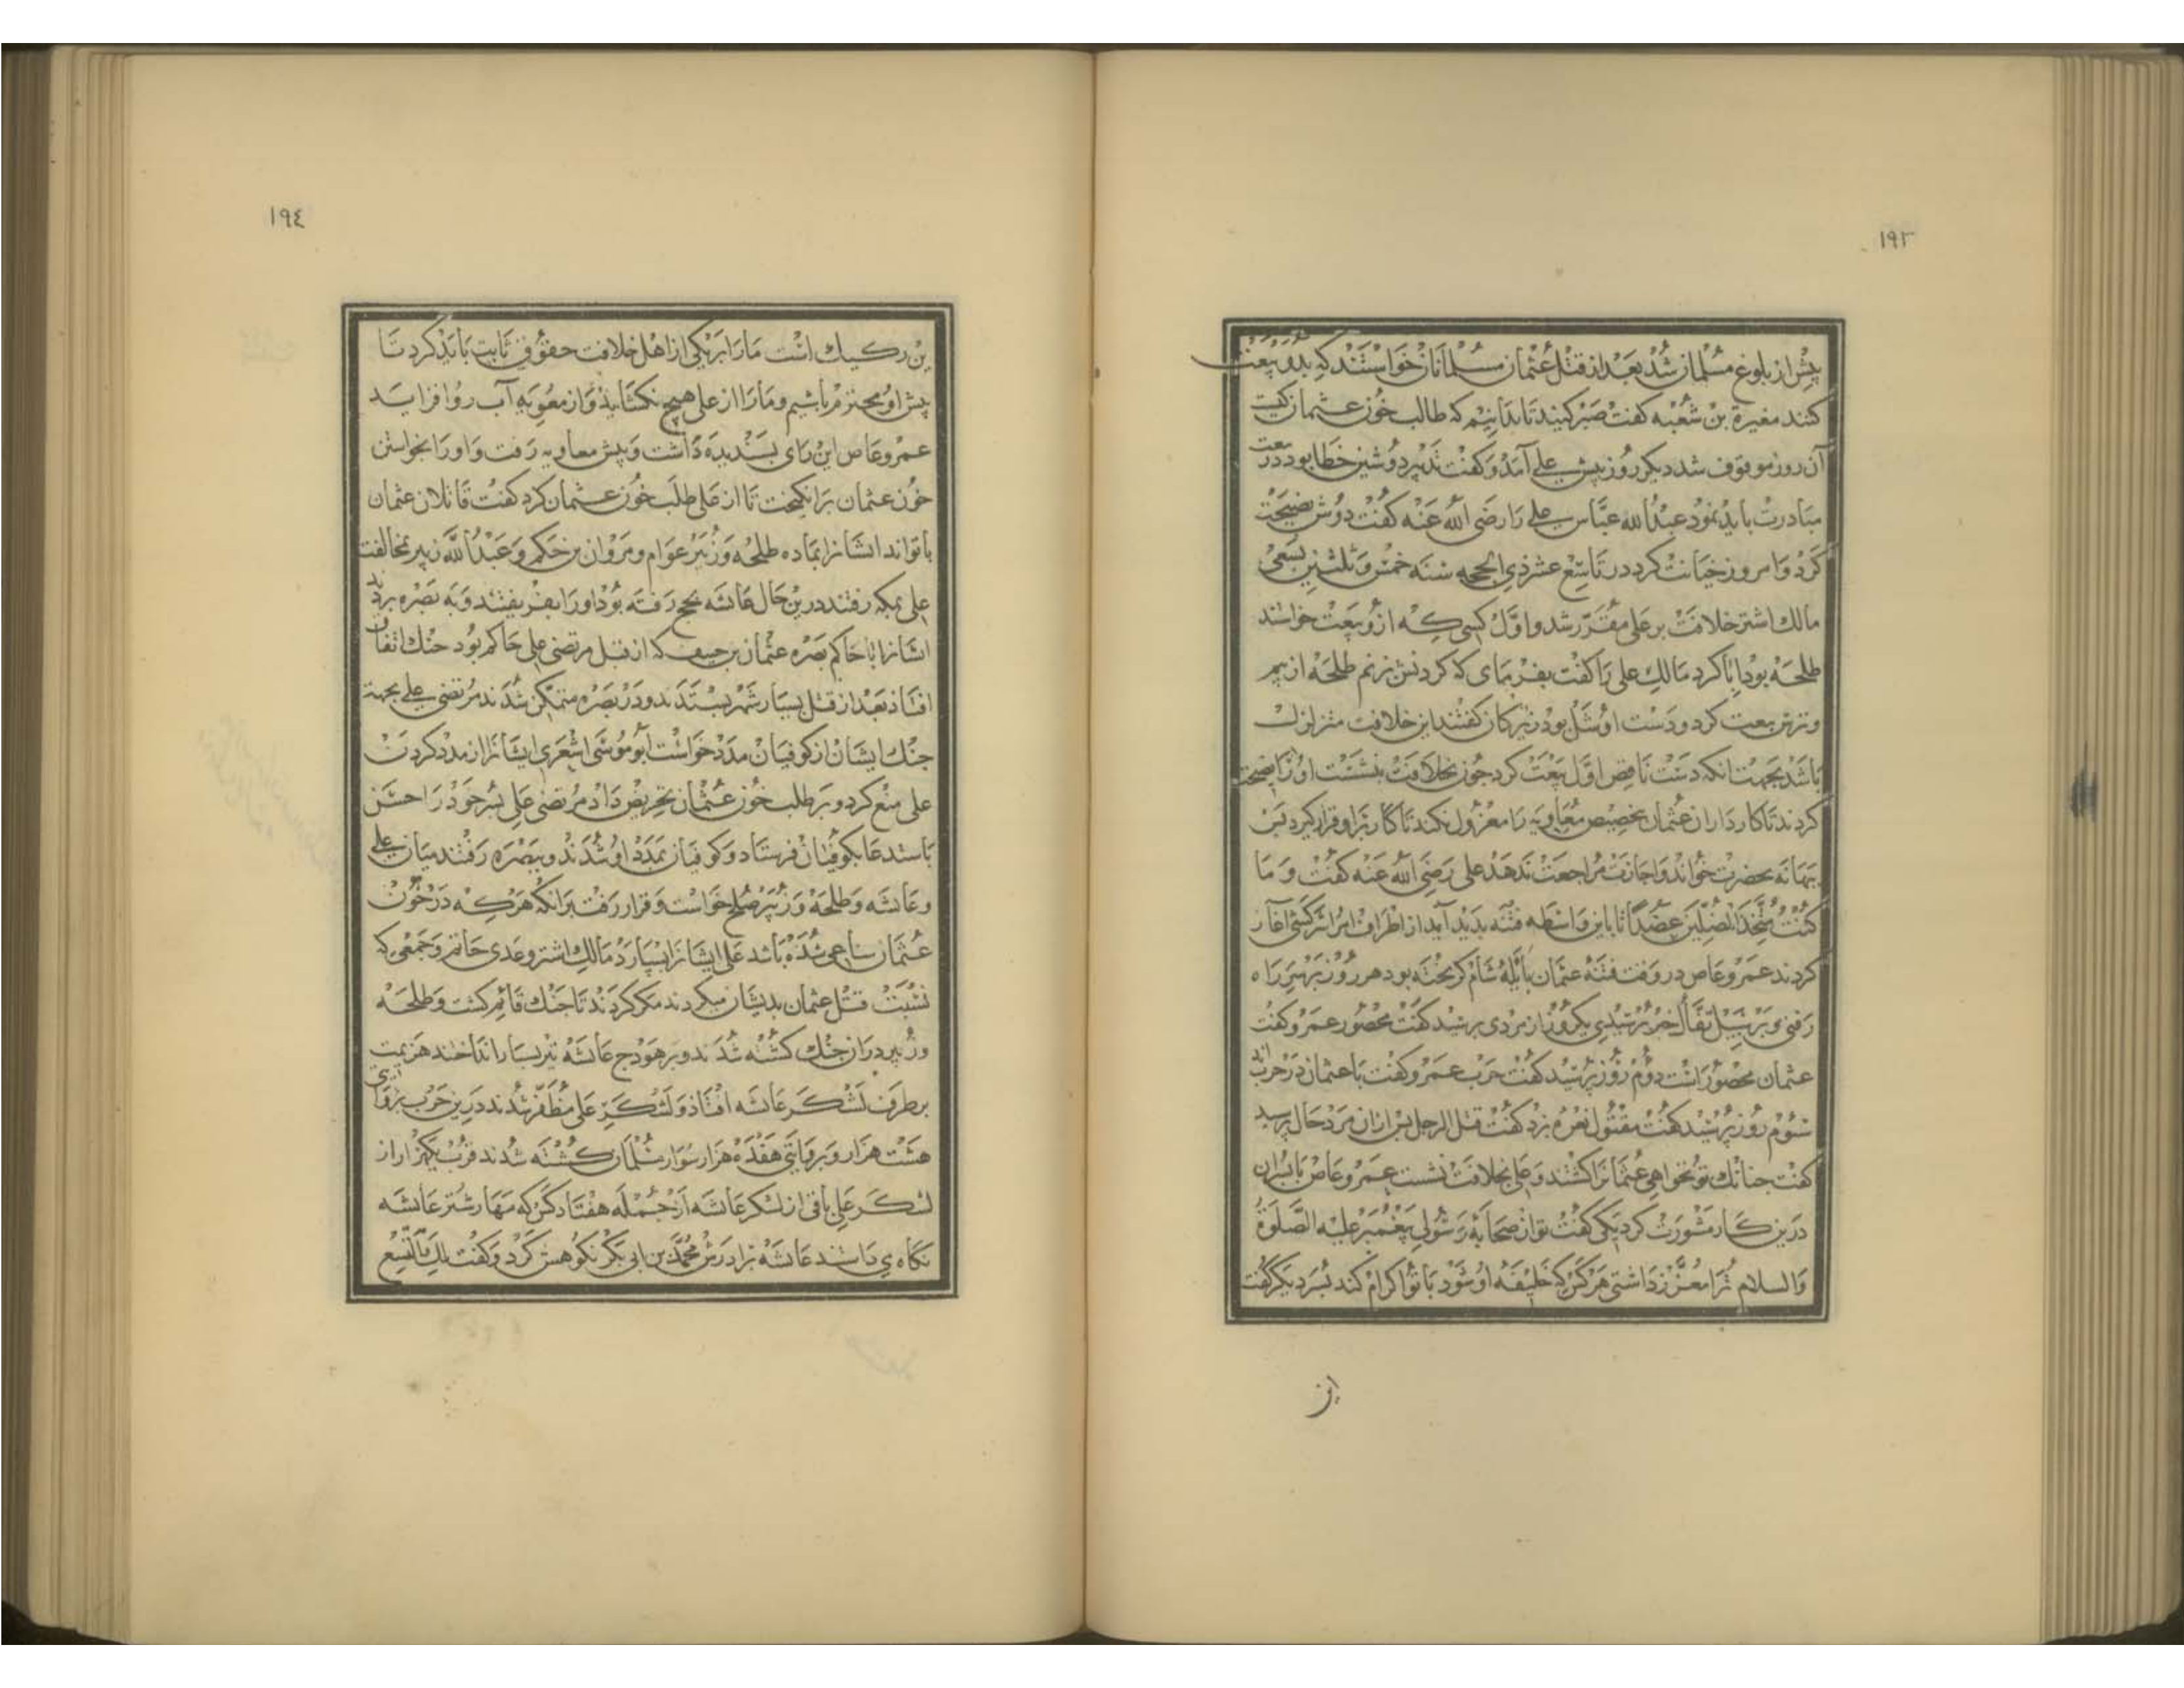 ١٩٣
پیش از بلوغ مسلمان شد بعد از قتل عثمان مسلمانان خواستند که بدو بیعت
کنند مغیرة بن شعبه کفت صبر کنید تا بدانیم که طالب خون عثمان کیست
آن روز موقوف شد دیکر روز پیش علی آمد و کفت تدبیر دوشین خطا بود در بیعت
مبادرت باید نمود عبدالله عباس علی را رضی الله عنه کفت دوش نصیحت
کرد و امروز خیانت کرد در تاسع عشر ذی الحجه سنه خمس و ثلثین بسعی
مالک اشتر خلافت بر علی مقرر شد و اول کسی که ازو بیعت خواستند
طلحه بود ابا کرد مالک علی را کفت بفرمای که کردنش بزنم طلحه از بیم
و ترس بیعت کرد و دست او شل بود زیرکان کفتند این خلافت متزلزل
باشد بجهت انکه دست ناقص اول بیعت کرد جون بخلافت بنشست او را نصیحت
کردند تا کارداران عثمان بتخصیص معاویه را معزول نکند تا کار برو قرار کیرد پس
ببهانه بحضرت خواند و اجازت مراجعت ندهد علی رضی الله عنه کفت و ما
کنت متخذ المضلین عضدا تا باین واسطه فتنه بدید آمد از اطراف امرا سرکشی آغاز
کردند عمرو عاص در وقت فتنه عثمان بایله شام کریخته بود هر روز بر سر راه
رفتی و بر سبیل تفأل خبر پرسیدی یکروز از مردی پرسید کفت محصور عمرو کفت
عثمان محصور است دوم روز پرسید کفت حرب عمرو کفت با عثمان در حربند
سوم روز پرسید کفت مقتول نعره بزد کفت قتل الرجل پس ازان مرد حال پرسید
کفت جنانک تو نخواهی عثمانرا کشتند و علی بخلافت نشست عمرو عاص با پسران
درین کار مشورت کرد یکی کفت تو از صحابۀ رسولی پیغمبر علیه الصلوة
والسلام ترا معزز داشتی هرکس که خلیفه او شود با تو اکرام کند پسر دیکر کفت
این
١٩٤
این رکیک است مارا بر یکی از اهل خلافت حقوقی ثابت باید کرد تا
پیش او محترم باشیم و مارا از علی هیچ نکشاید و از معویه آب رو افزاید
عمرو عاص این رای پسندیده داشت و پیش معاویه رفت و او را بخواستن
خون عثمان برانکیخت تا از علی طلب خون عثمان کرد کفت قاتلان عثمان
با تواند ایشانرا بما ده طلحه و زبیر عوام و مروان بن حکم و عبدالله زبیر بمخالفت
علی بمکه رفتند درین حال عایشه بحج رفته بود او را بفریفتند و به بصره بردند
ایشانرا با حاکم بصره عثمان بن حنیف که از قبل مرتضی علی حاکم بود جنک اتفاق
افتاد بعد از قتل بسیار شهر بستدند و در بصره متمکن شدند مرتضی علی بجهة
جنک ایشان از کوفیان مدد خواست ابو موسی اشعری ایشانرا از مدد کردن
علی منع کرد و بر طلب خون عثمان تحریض داد مرتضی علی پسر خود را حسن
باستدعا بکوفیان فرستاد و کوفیان بمدد او شدند و ببصره رفتند میان علی
و عایشه و طلحه و زبیر صلح خواست و قرار رفت برانکه هرکه در خون
عثمان ساعی شده باشد علی ایشانرا بسپارد مالک اشتر و عدی حاتم و جمعی که
نسبت قتل عثمان بدیشان میکردند مکر کردند تا جنک قائم کشت و طلحه
و زبیر در ان جنک کشته شدند و بر هودج عایشه تیر بسیار انداختند هزیمت
بر طرف لشکر عایشه افتاد و لشکر علی مظفر شدند درین حرب بروایتی
هشت هزار و بروایتی هفده هزار سوار مسلمان کشته شدند قرب یکهزار از
لشکر علی باقی از لشکر عایشه ازجمله هفتاد کس که مهار شتر عایشه
نکاه می داشتند عایشه برادرش محمد بن ابی بکر نکوهش کرد و کفت